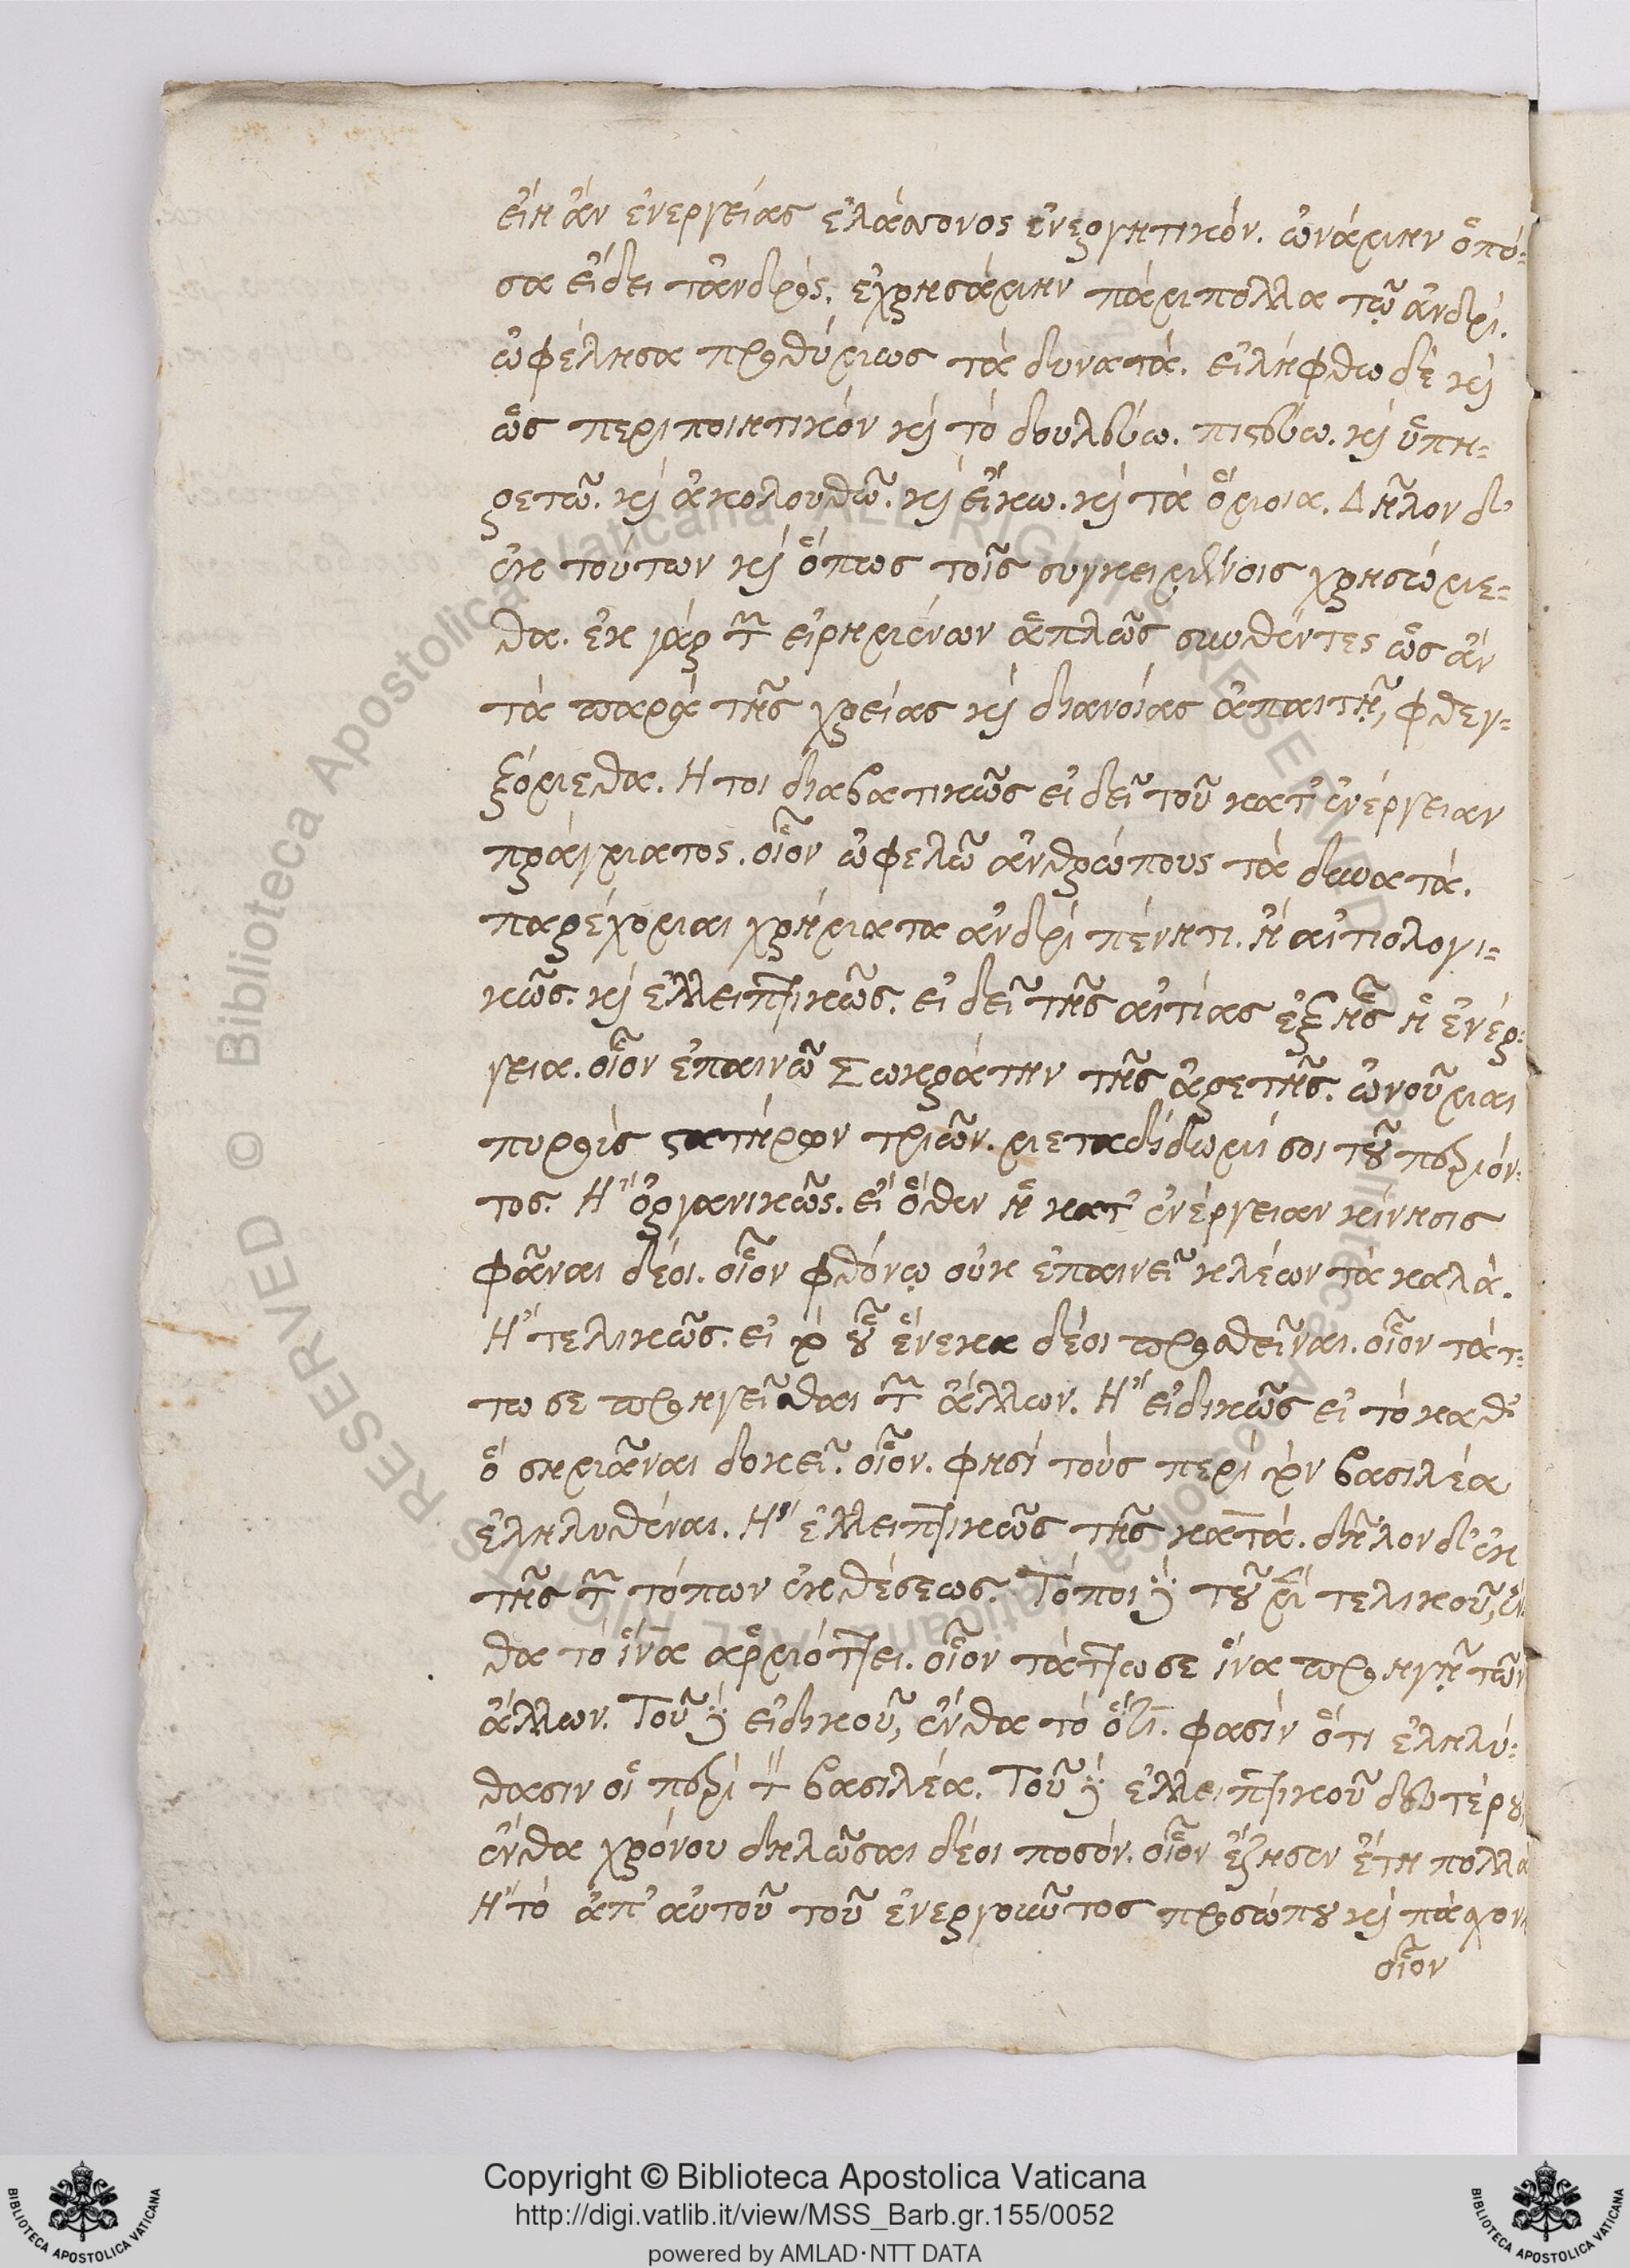 εἴη ἂν ἐνεργείας ἐλάττονος ἐνεργητικόν. ὠνάμην ὁπό-
σα εἴδει τἀνδρός. ἐχρησάμην πάμπολλα τῷ ἀνδρί.
ὠφέλησα προθύμως τὰ δυνατά. εἰλήφθω δὲ καὶ
ὡς περιποιητικὸν καὶ τὸ δουλεύω. πιστεύω. καὶ ὑπη-
ρετῶ. καὶ ἀκολουθῶ. καὶ εἴκω. καὶ τὰ ὅμοια. Δῆλον δ'
ἐκ τούτων καὶ ὅπως τοῖς συγκειμένοις χρησόμε-
θα. ἐκ γὰρ τῶν εἰρημένων ἁπλῶς συνθέντες ὡς ἂν
τὰ παρὰ τῆς χρείας καὶ διανοίας ἀπαιτῇ, φθεγ-
ξόμεθα. Ἤτοι διαβατικῶς εἰ δεῖ τοῦ κατ' ἐνέργειαν
πράγματος. οἷον ὠφελῶ ἀνθρώπους τὰ δυνατά.
παρέχομαι χρήματα ἀνδρὶ πένητι. ἢ αἰτιολογι-
κῶς. καὶ ἐλλειπτικῶς. εἰ δεῖ τῆς αἰτίας ἐξ ἧς ἡ ἐνέρ-
γεια. οἷον ἐπαινῶ Σωκράτην τῆς ἀρετῆς. ὠνοῦμαι
πυροὺς στατήρων τριῶν. μεταδίδωμί σοι τοῦ περιόν-
τος. Ἢ ὀργανικῶς. εἰ ὅθεν ἡ κατ' ἐνέργειαν κίνησις
φᾶναι δέοι. οἷον φθόνῳ οὐκ ἐπαινεῖ κλέων τὰ καλά.
Ἢ τελικῶς. εἰ τὸ οὗ ἕνεκα δέοι προσθεῖναι. οἷον τάτ-
τω σε προηγεῖσθαι τῶν ἄλλων. Ἢ εἰδικῶς εἰ τὸ καθ'
ὃ σημᾶναι δοκεῖ. οἷον. φησὶ τοὺς περὶ τὸν βασιλέα
ἐληλυθέναι. Ἢ ἐλλειπτικῶς τῆς κατά. δῆλον δ' ἐκ
τῆς τῶν τόπων ἐκθέσεως. Τόποι δὲ τοῦ μὲν τελικοῦ, ἔν-
θα τὸ ἵνα ἁρμόττει. οἷον τάττω σε ἵνα προηγῇ τῶν
ἄλλων. Τοῦ δὲ εἰδικοῦ, ἔνθα τὸ ὅτι. φασὶν ὅτι ἐληλύ-
θασιν οἱ περὶ τὸν βασιλέα. Τοῦ δὲ ἐλλειπτικοῦ δευτέρου,
ἔνθα χρόνου δηλῶσαι δέοι ποσόν. οἷον ἔζησεν ἔτη πολλά
Ἢ τὸ ἀπ' αὐτοῦ τοῦ ἐνεργοῦντος προσώπου καὶ πάσχον
οἷον
Copyright © Biblioteca Apostolica Vaticana
http://digi.vatlib.it/view/MSS_Barb.gr.155/0052
powered by AMLAD·NTT DATA